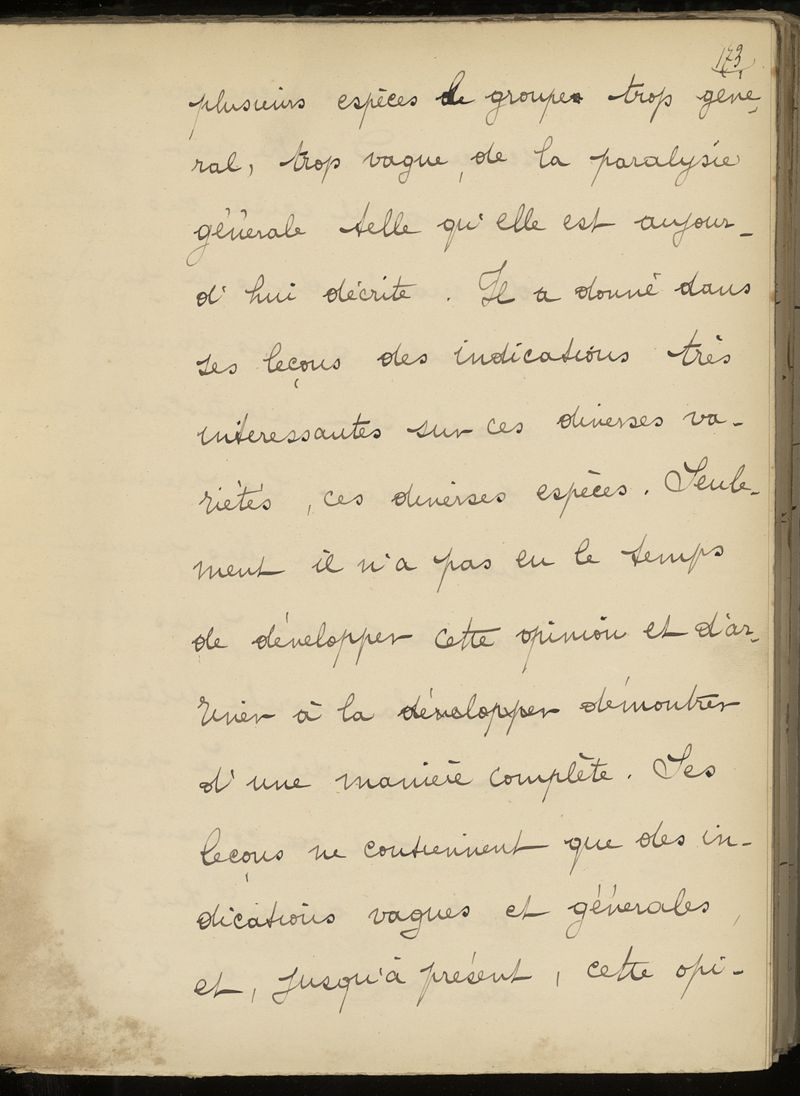 173
plusieurs espèces le groupe trop géné-
ral, trop vague, de la paralysie
générale telle qu'elle est aujour-
d'hui décrite. Il a donné dans
ses leçons des indications très
intéressantes sur ces diverses va-
riétés, ces diverses espèces. Seule-
ment il n'a pas eu le temps
de développer cette opinion et d'ar-
river à la développer démontrer
d'une manière complète. Ses
leçons ne contiennent que des in-
dications vagues et générales,
et, jusqu'à présent, cette opi-